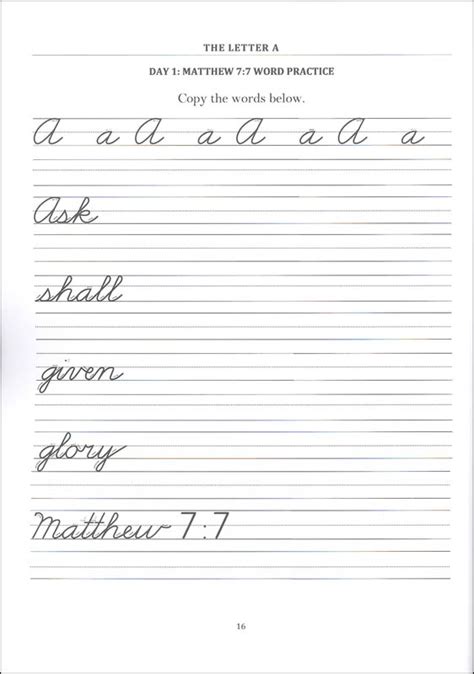 THE LETTER A
DAY 1: MATTHEW 7:7 WORD PRACTICE
Copy the words below.
A a A a A a A a
Ask
shall
given
glory
Matthew 7:7
16